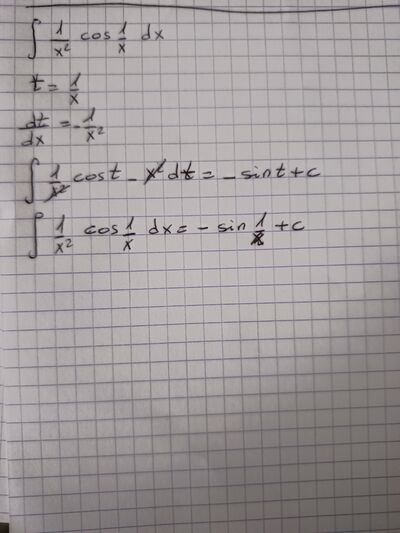 ∫ 1/x² cos 1/x dx
t = 1/x
dt/dx = -1/x²
∫ 1/x² cos t - x² dt = - sin t + c
∫ 1/x² cos 1/x dx = - sin 1/x + c